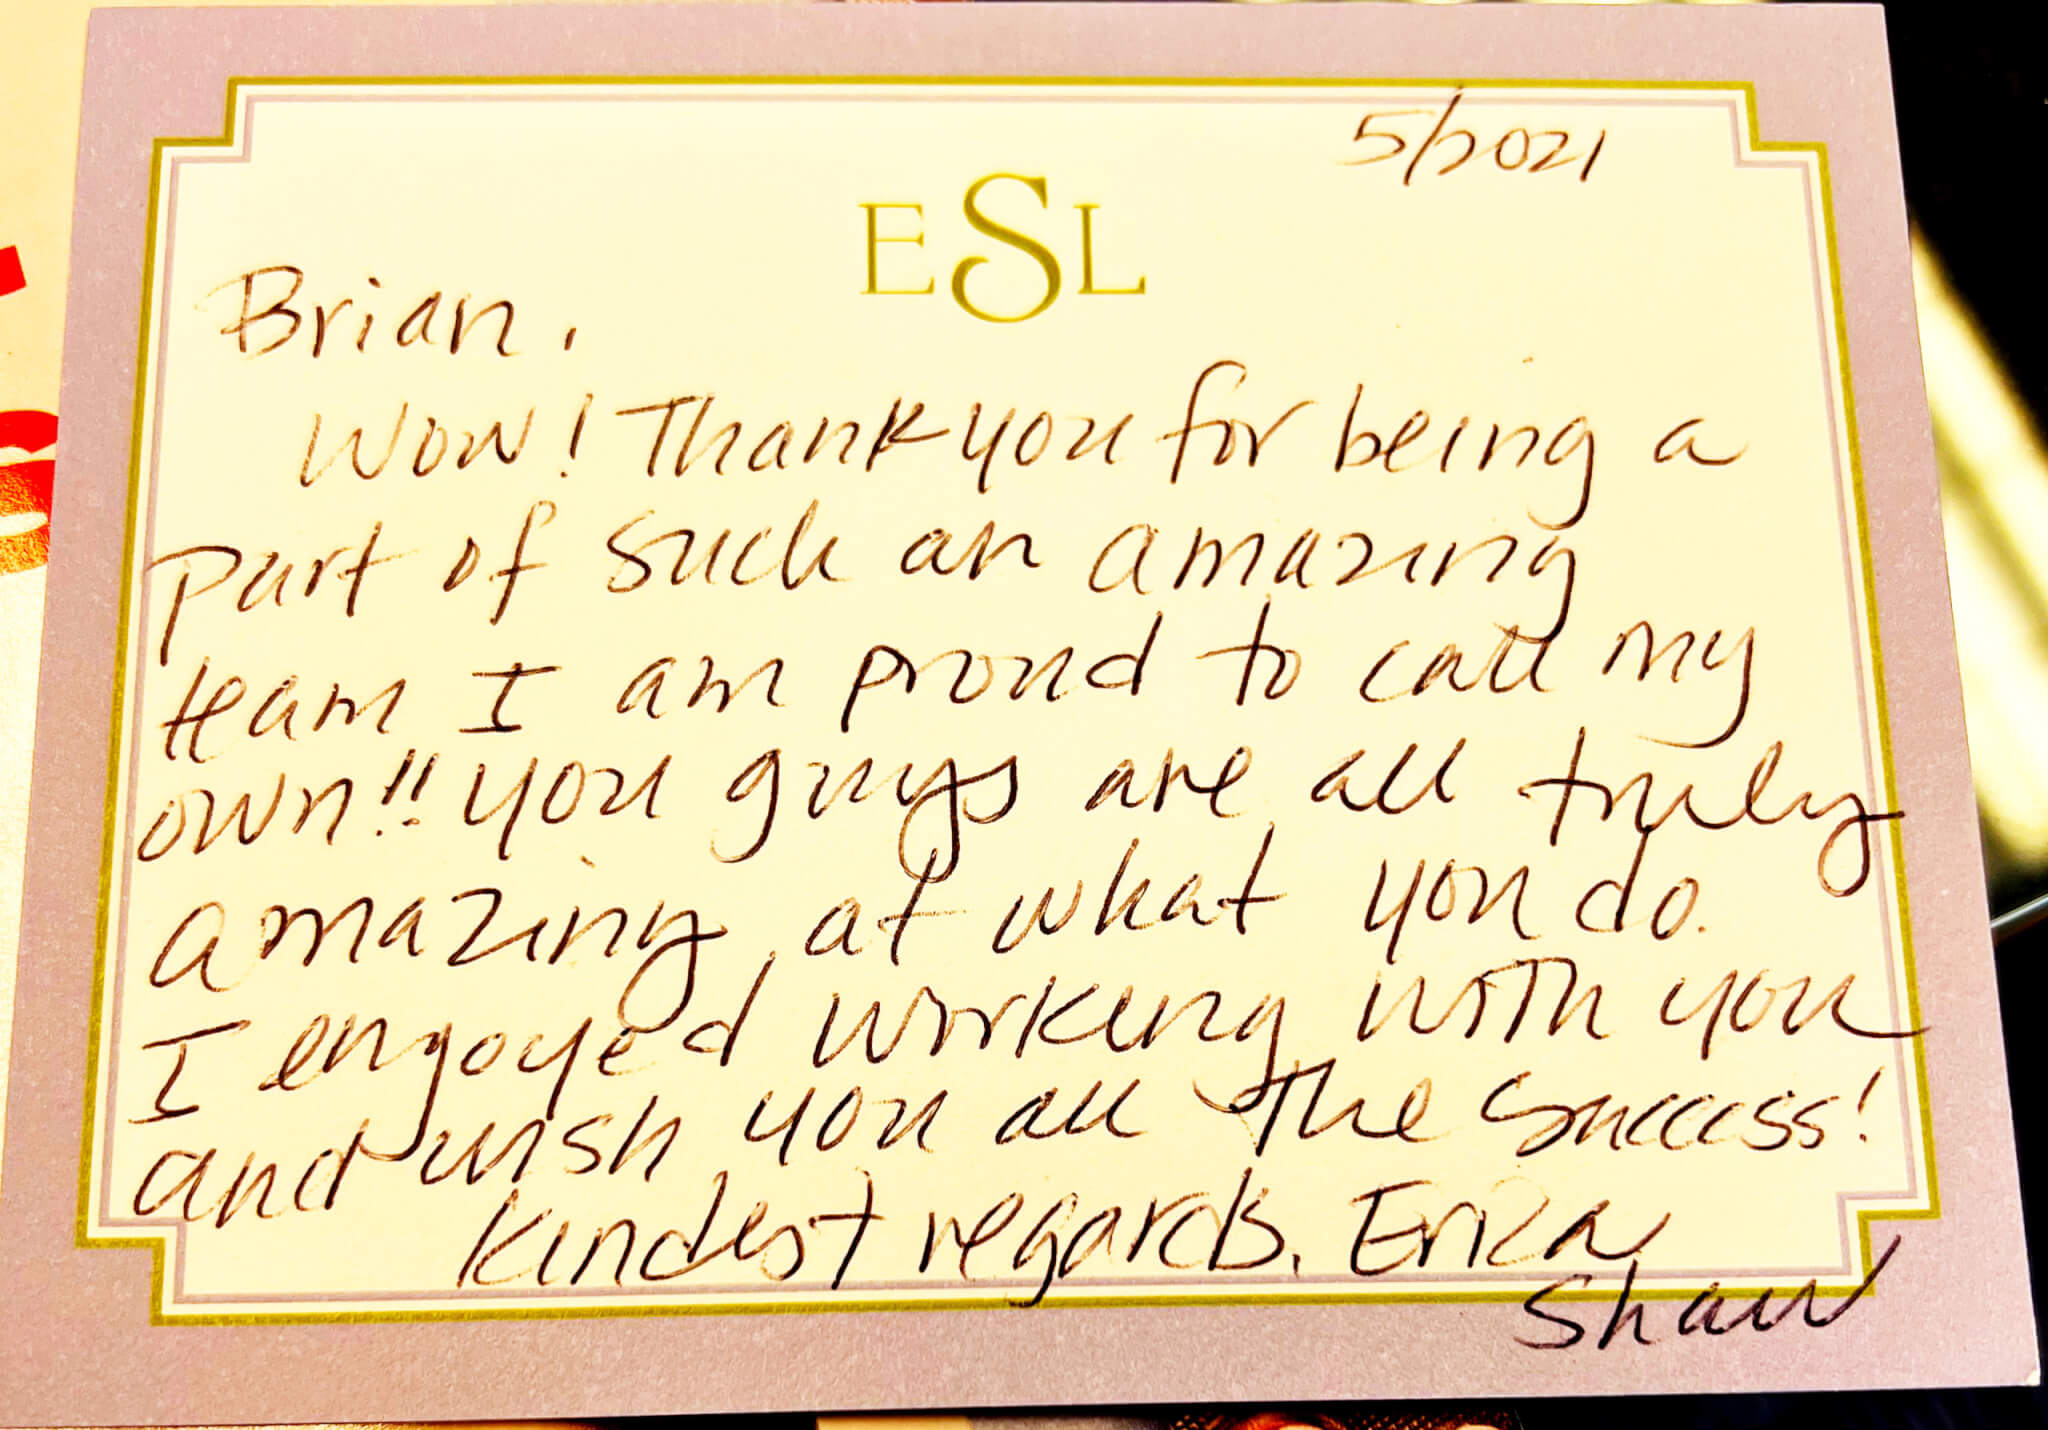 5/2021
ESL
Brian,
Wow! Thank you for being a
part of such an amazing
team I am proud to call my
own!! you guys are all truly
amazing at what you do.
I engoyed working with you
and wish you all the success!
Kindest regards, Erica
Shaw